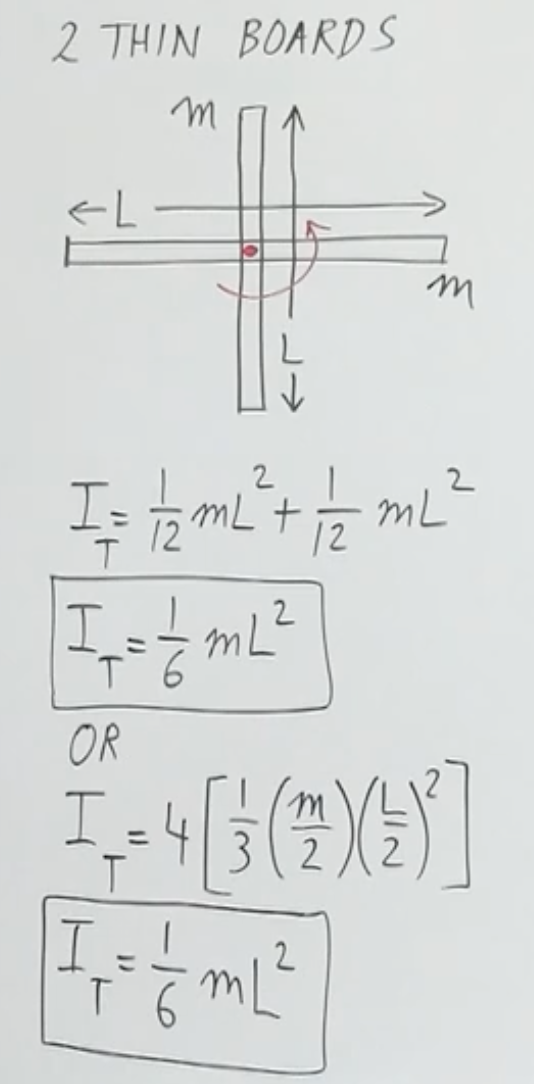 2 THIN BOARDS
m
←L→
m
L
I_T = 1/12 mL² + 1/12 mL²
I_T = 1/6 mL²
OR
I_T = 4[1/3(m/2)(L/2)²]
I_T = 1/6 mL²